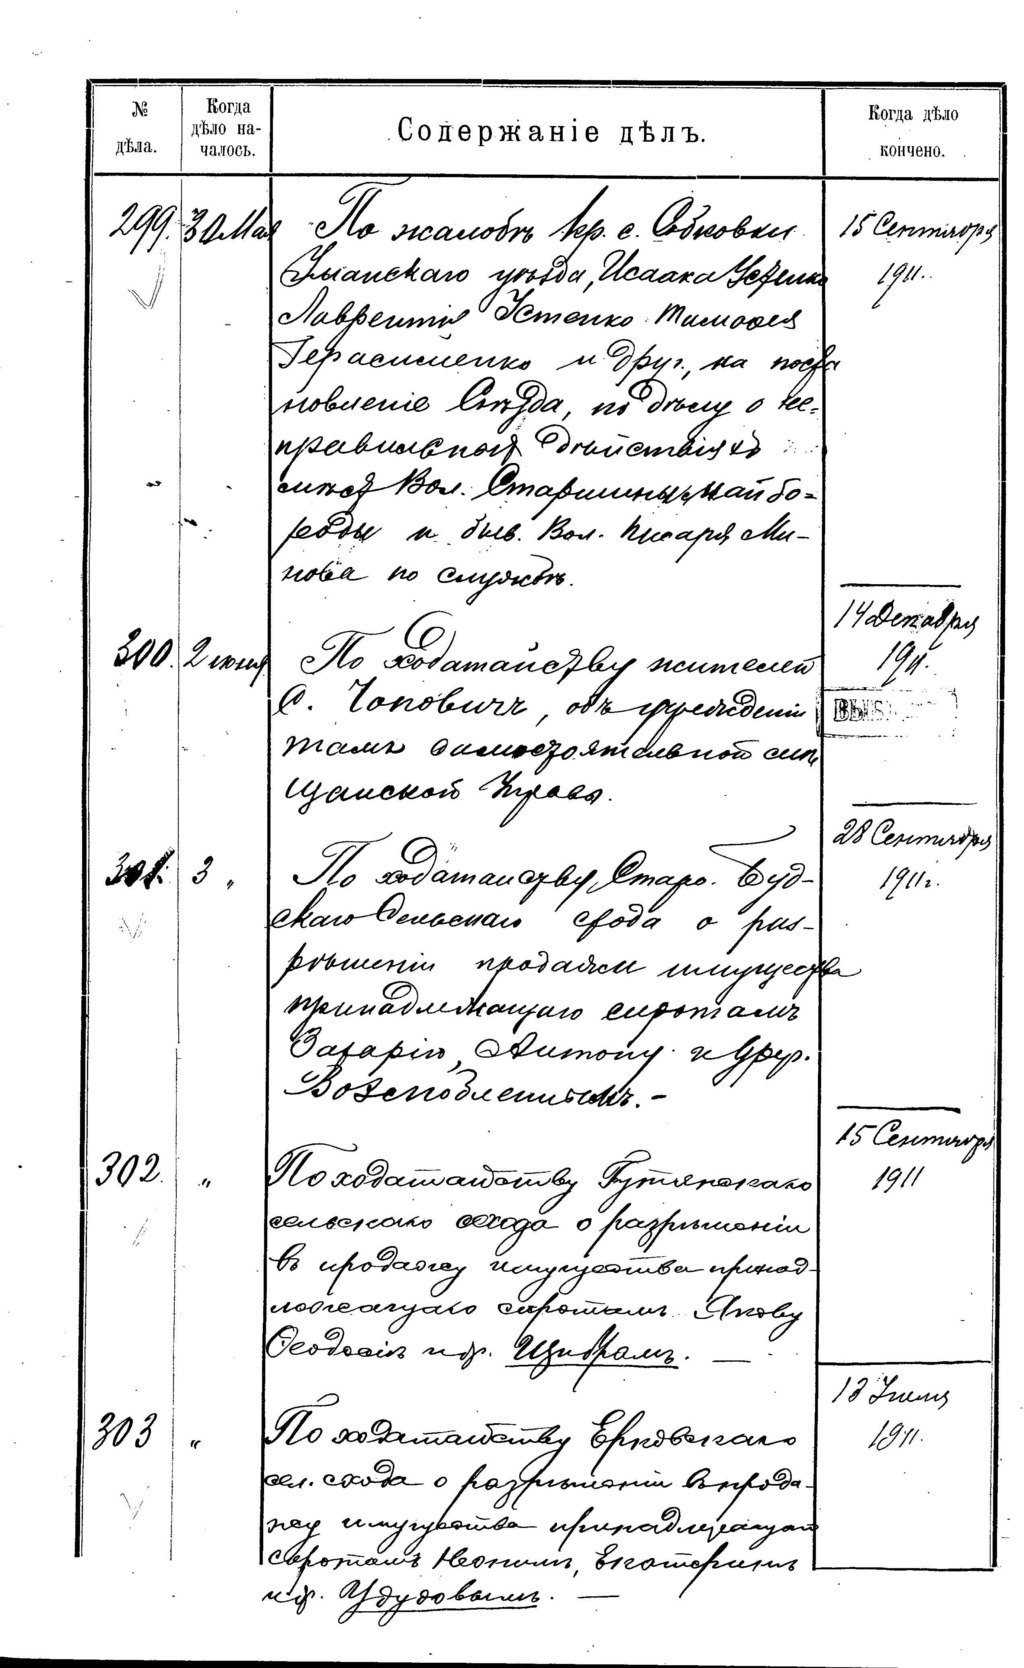 № дѣла.
Когда дѣло началось.
Содержаніе дѣлъ.
Когда дѣло кончено.
299. 30 Мая По жалобѣ кр. с. Собковки 15 Сентября
Уманскаго уѣзда, Исаака Устенко 1911.
Лаврентія Устенко Тимофея
Герасименко и друг., на поста
новленіе Съѣзда, по дѣлу о не-
правильной дѣйствіяхъ
Вол. Старшины Майбо-
роды и быв. Вол. Писаря Ми-
нова по службѣ.
14 Декабря
300. 2 июня По ходатайству жителей 1911.
с. Чоповичъ, объ учрежденіи
тамъ самостоятельной мѣ
щанской Управы.
28 Сентября
301. 3 „ По ходатайству Старо-Буд- 1911 г.
скаго Сельскаго схода о раз-
рѣшеніи продажи имущества
принадлежащаго сиротамъ
Захарію, Антону и друг.
15 Сентября
302. „ По ходатайству Гутянскаго 1911
сельскаго схода о разрѣшеніи
въ продажу имущества принад-
лежащаго сиротамъ Якову
Ѳеодосію и др. Щибрамъ. —
13 Іюля
303 „ По ходатайству Ерковскаго 1911.
сел. схода о разрѣшеніи въ прода-
жу имущества принадлежащаго
сиротамъ Екатеринѣ
и др. Удудовымъ. —